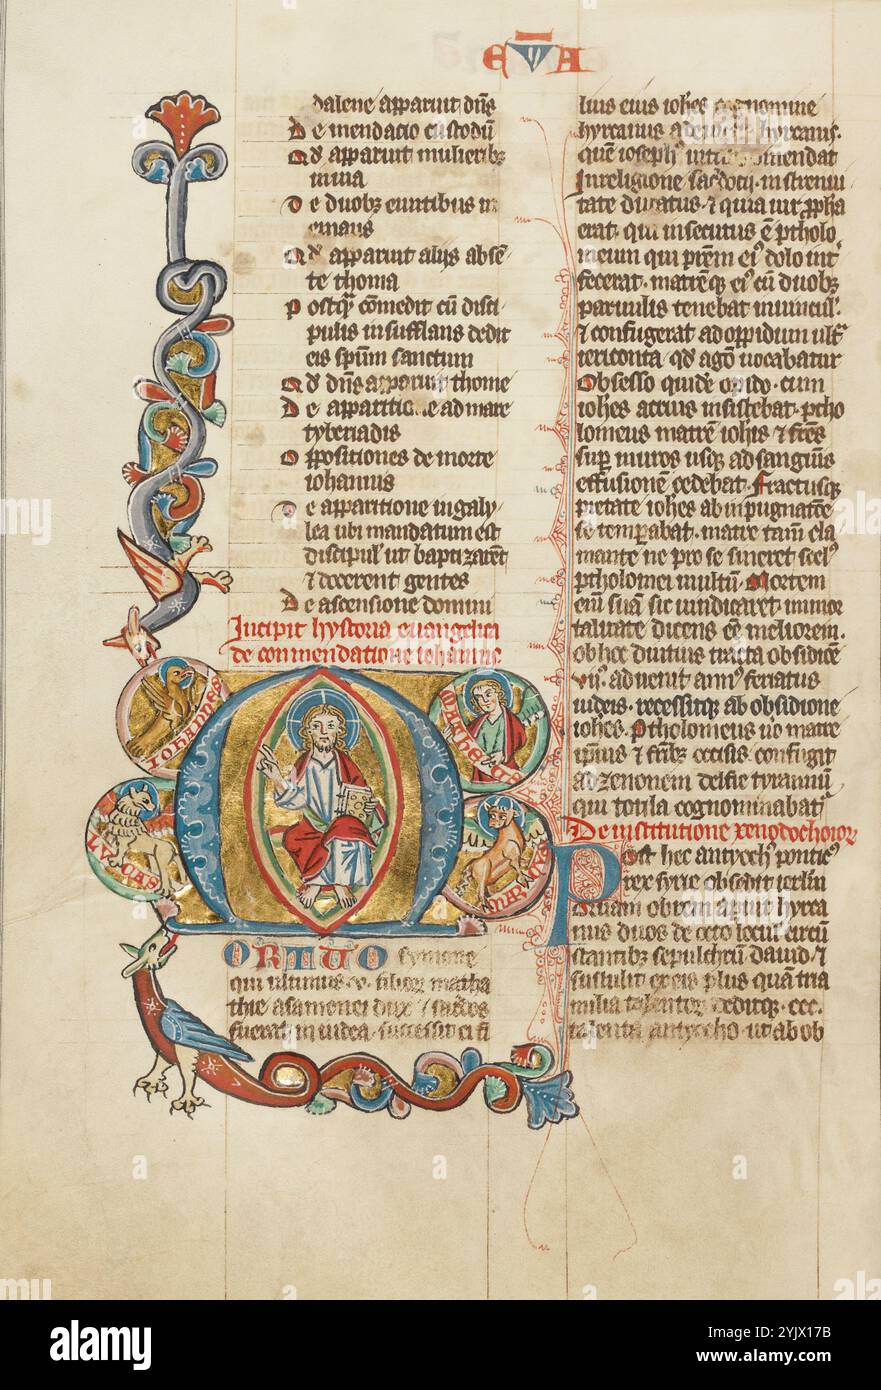 EVA
dalene apparuit dn̄s
De mendacio custodū
Qd̄ apparuit mulieribꝫ
in uia
De duobꝫ euntibus in
emaus
Qd̄ apparuit alijs absē
te thoma
Postq̄ cōmedit cū disci
pulis insufflans dedit
eis spm̄ sanctum
Qd̄ dn̄s apparuit thome
De apparitione ad mare
tyberiadis
Oppositiones de morte
iohannis
De apparitione in galy
lea ubi mandatum est
discipul' ut baptizarēt
⁊ docerent gentes
De ascensione domini
Incipit hystoria euangelici
de commendatione iohannis
IOHANNES
MATHEUS
LVCAS
MARCUS
MORTUO symone
qui ultimus
filiorum matha
thie asamonei dux ⁊ sacdos
fuerat in iudea successit ei fi
lius eius ioh̄es cognomine
hyrcanus
hyrcanis.
quē ioseph'
comendat
In religione sac̄dotij. in strenui
tate ducatus. ⁊ quia uir ꝓpha
erat. qui insecutus ē ptholo
meum qui pr̄em ei' dolo int̄
fecerat. matrēqꝫ ei' cū duobꝫ
paruulis tenebat in uincul'.
⁊ confugerat ad oppidum ult̄
iericonta qd̄ agō uocabatur
Obsesso quidē opido. cum
ioh̄es acrius insistebat. ptho
lomeus matrē ioh̄is ⁊ fr̄es
suꝑ muros usqꝫ ad sanguīs
effusionē cedebat. Fractusqꝫ
pietate ioh̄es ab inpugnatōe
se temꝑabat. matre tam̄ cla
mante ne pro se sineret scel'
ptholomei multū. Mortem
eni suā sic uindicaret inmor
talitate dicens eē meliorem.
Ob hoc diutius tracta obsidiōe
vijs. aduenit ann' feriatus
iudeis. recessitqꝫ ab obsidione
ioh̄es. Ptholomeus u̇o matre
ip̄ius ⁊ fr̄ibꝫ occisis. confugit
ad zenonem delfie tyrannū
qui totila cognominabat̄
De institutione xenodochiorꝝ
Post hec antyoch' ponti'
rex syrie obsedit ierl̄m
aperuit hyrca
nus duos de octo locul' circū
stantibꝫ sepulchrū dauid. ⁊
sustulit ex eis plus quā tria
milia talentoꝝ. deditqꝫ. ccc.
talenta antyocho. ut ab ob
alamy
Image ID: 2YJX17B
www.alamy.com